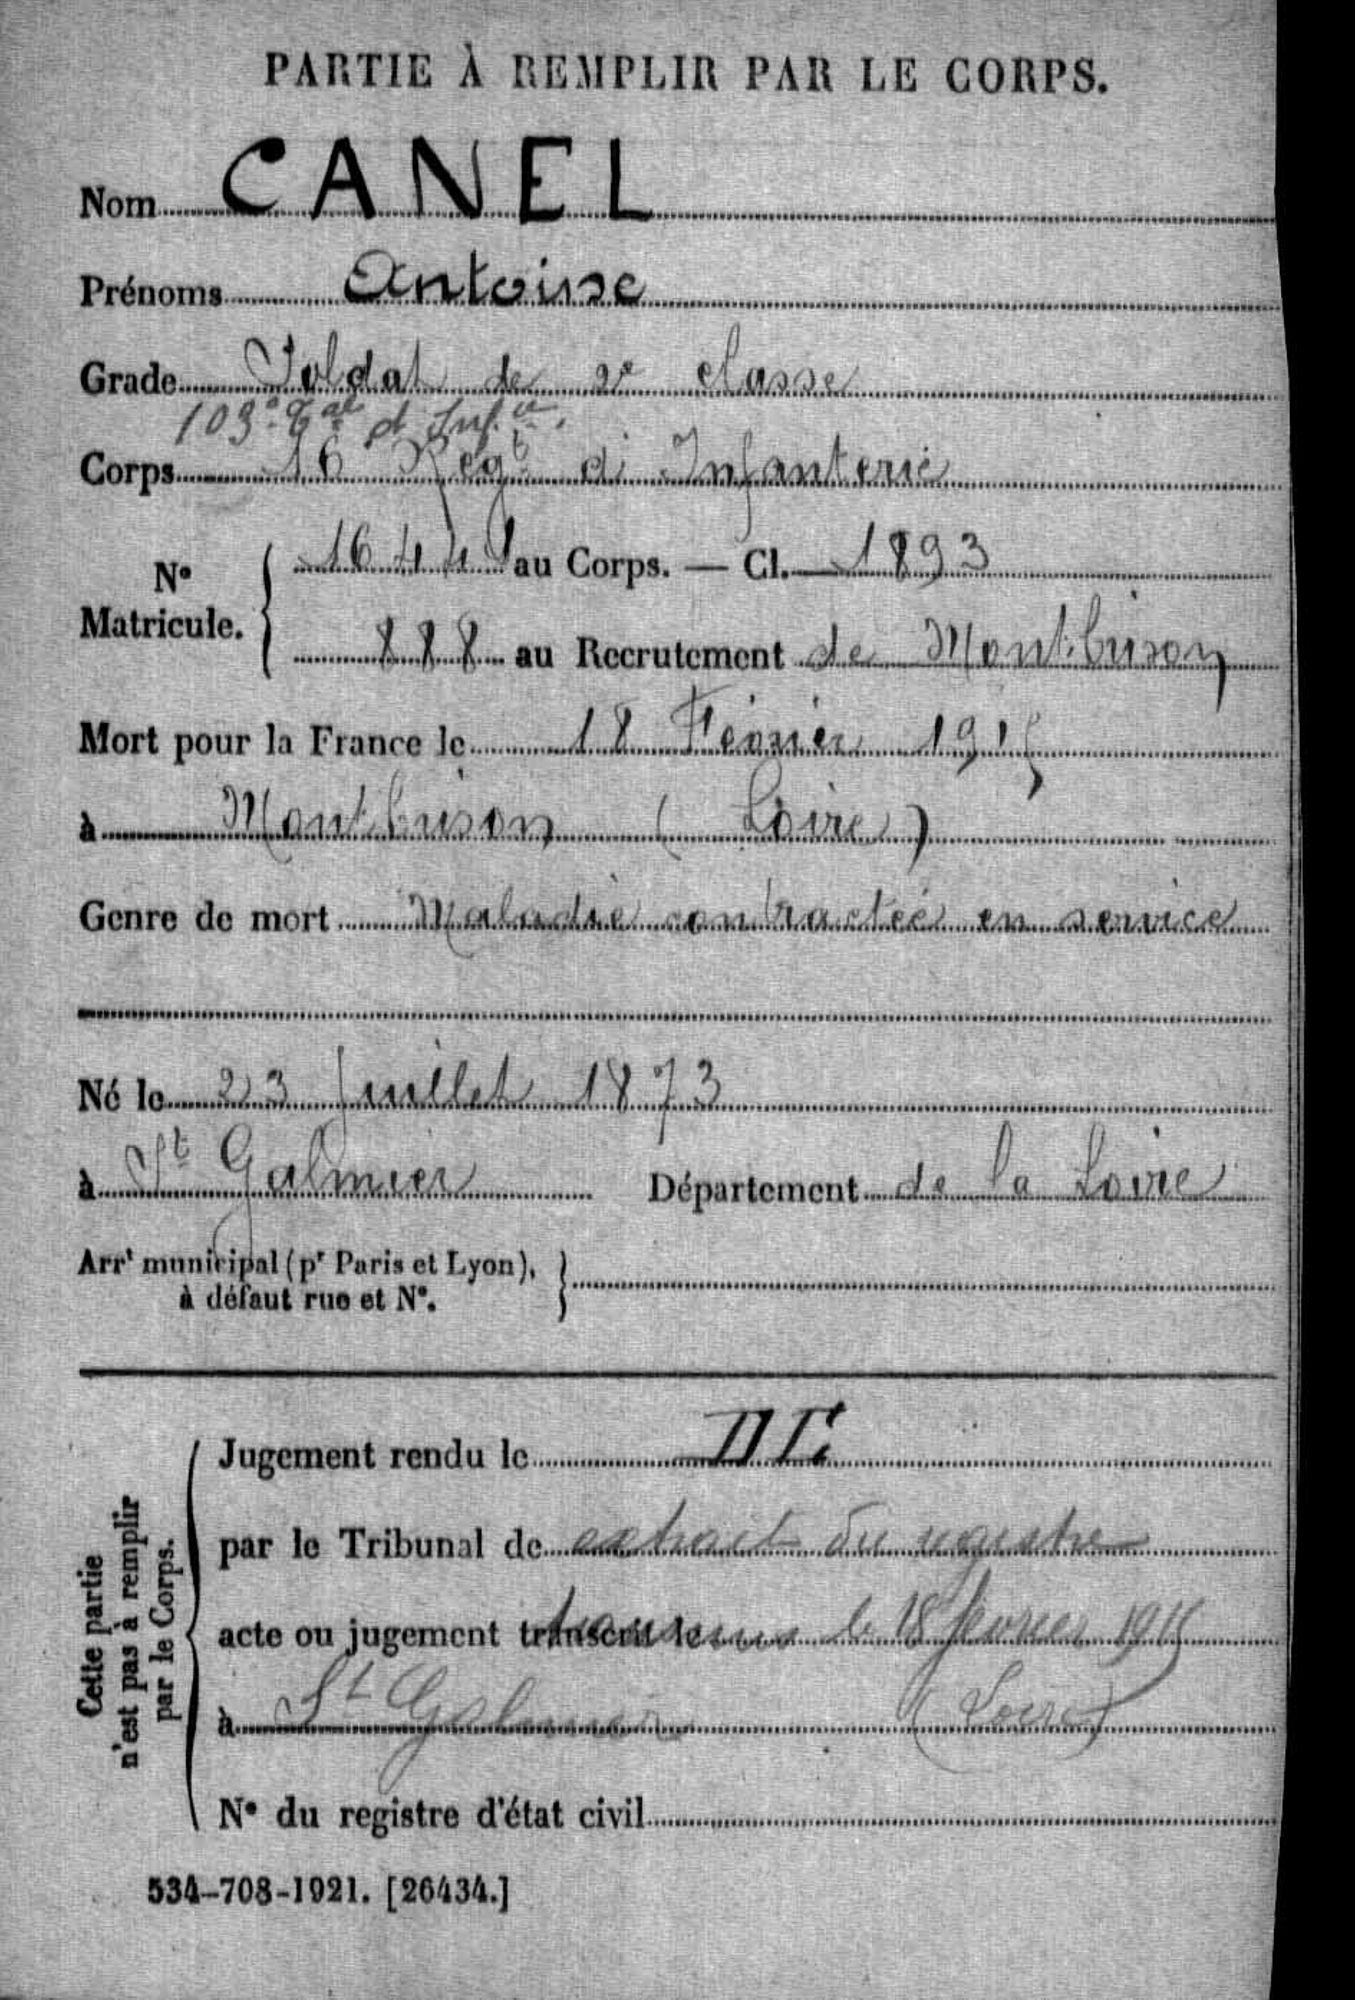 PARTIE À REMPLIR PAR LE CORPS.
Nom CANEL
Prénoms Antoine
Grade Soldat de 2e classe
103e Tal d'Infie.
Corps 16 Regt d'Infanterie
No Matricule. 1644 au Corps. — Cl. 1893
888 au Recrutement de Montbrison
Mort pour la France le 18 Février 1915
à Montbrison (Loire)
Genre de mort Maladie contractée en service
Né le 23 Juillet 1873
à St Galmier Département de la Loire
Arrt municipal (pr Paris et Lyon),
à défaut rue et No.
Cette partie
n'est pas à remplir
par le Corps.
Jugement rendu le
par le Tribunal de extrait du registre
acte ou jugement transcrit le transmis le 18 février 1915
à St Galmier (Loire)
No du registre d'état civil
534-708-1921. [26434.]